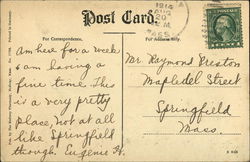 Post Card
For Correspondence.
1914
AUG
20
M.
MASS.
Am here for a week
& am having a
fine time. This
is a very pretty
place, not at all
like Springfield
though. Eugenie H.
Mr Raymond Preston
Mapledel Street
Springfield
Mass.